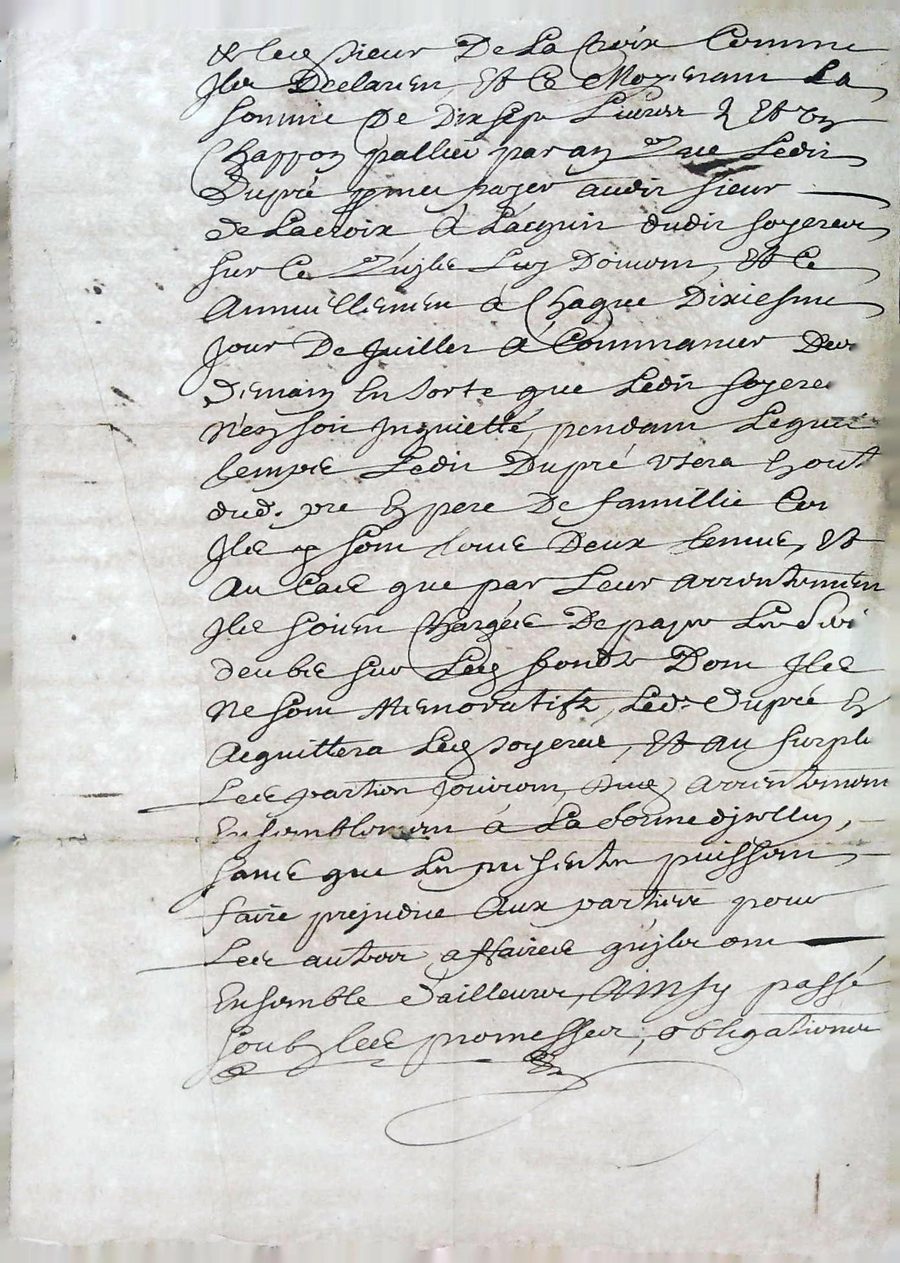 & les sieur De La Croix Comme
Ils Declaren, Et Ce Moyenant La
somme De Dixsept Livres Et un
Chappon pallier par an que Ledit
Dupré promet payer audit sieur
de Lacroix à Lacquit dudit soyereur
sur Ce Luy Doivent, Et Ce
Annuellement à Chaque Dixiesme
Jour De Juillet à Commancer Des
demain En sorte que Ledit soyere
N'en soit Inquietté, pendant Lequel
temps Ledit Dupré Usera Et Jouit
dud. pré En pere De famillie Car
Ils y sont tous Deux tenus, Et
Au Cas que par Leur arrentement
Ils soient Chargés De payer Les servi
deubs sur Les fonds Dont Ils
Ne sont Memoratifz, Led. Dupré En
Acquittera Les soyerere, Et au surplu
Les parties Jouiront, Dud arrentement
Ensemblement à La bonne
sans que Les presentes puissent
faire prejudice Aux parties pour
Les autres affaires qu'ils ont
Ensemble d'ailleurs, Ainsy passé
soub les promesses, obligations